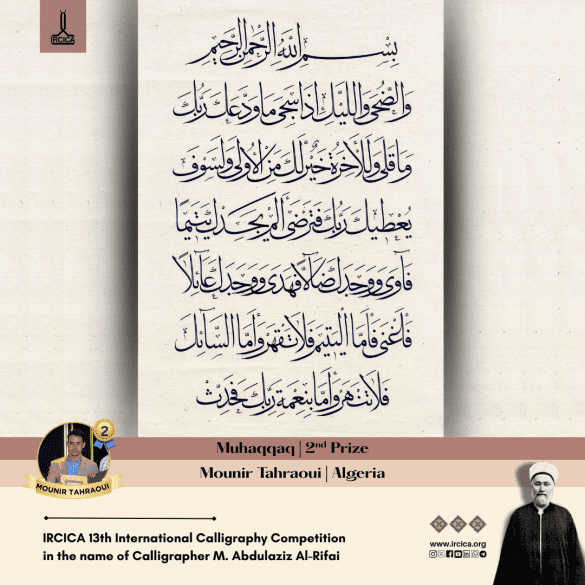 IRCICA
بسم الله الرحمن الرحيم
والضحى والليل اذا سجى ما ودعك ربك
وما قلى وللآخرة خير لك من الاولى ولسوف
يعطيك ربك فترضى ألم يجدك يتيما
فآوى ووجدك ضالا فهدى ووجدك عائلا
فأغنى فأما اليتيم فلا تقهر وأما السائل
فلا تنهر وأما بنعمة ربك فحدث
2
MOUNIR TAHRAOUI
Muhaqqaq | 2nd Prize
Mounir Tahraoui | Algeria
IRCICA 13th International Calligraphy Competition
in the name of Calligrapher M. Abdulaziz Al-Rifai
www.ircica.org